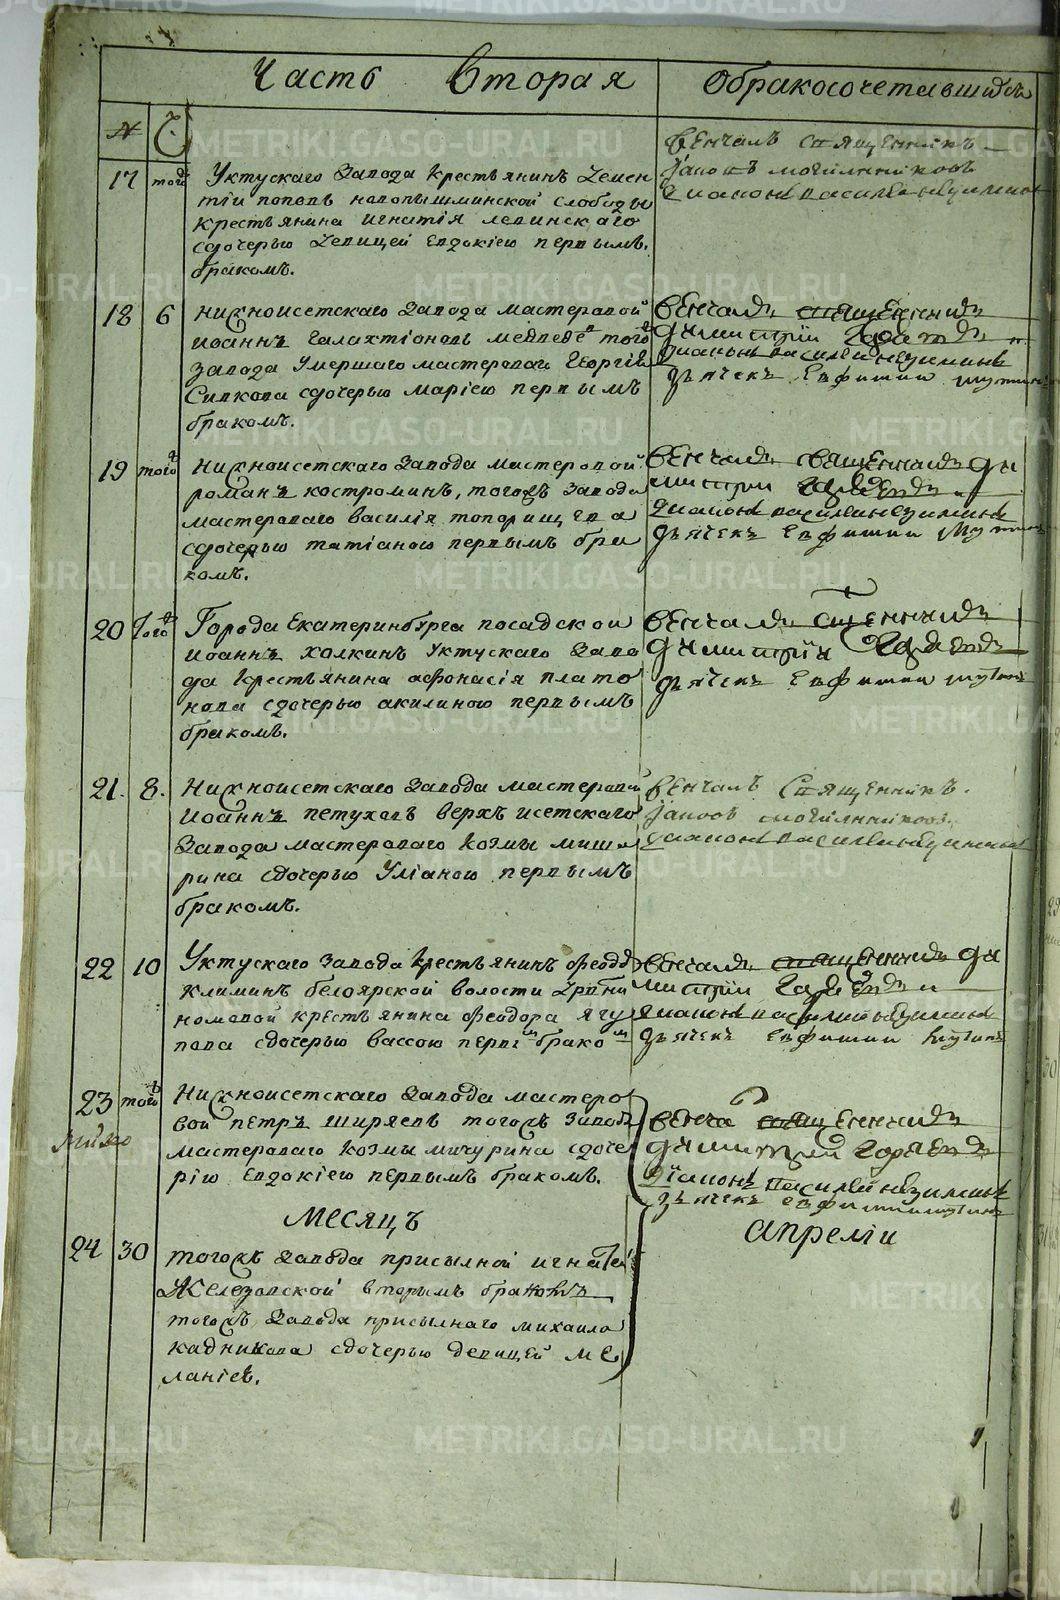 Часть вторая
О бракосочетавшихся
№ Ч.
17 того ж
Уктускаго завода крестьянинъ Демен
тий поповъ новопышминской слободы
крестьянина игнатія левинскаго
сдочерью девицей Евдокіею первымъ
бракомъ.
венчалъ священникъ
Іаковъ могильниковъ
диаконъ василей неуиминъ
18 6
нижноисетскаго завода мастеровой
иоаннъ галактіоновъ медведев тогож
завода умершаго мастероваго георгія
Сивкова сдочерью маріею первымъ
бракомъ.
венчалъ священникъ
димитрій
диаконъ василей неуиминъ
дьячекъ Евфимий
19 того ж
нижноисетскаго завода мастеровой
романъ костроминъ, тогожъ завода
мастероваго василія топорищева
сдочерью татіаною первымъ бра
комъ.
венчалъ священникъ ди
митрий
диаконъ василей неуиминъ
дьячекъ Евфимий
20 того ж
Города Екатеринбурга посадской
иоаннъ холкинъ уктускаго заво
да крестьянина афонасія плато
нова сдочерью акилиною первымъ
бракомъ.
венчалъ священникъ
димитрій
дьячекъ Евфимий
21. 8.
Нижноисетскаго завода мастеровой
иоаннъ петуховъ верхъ исетскаго
завода мастероваго козмы миша
рина сдочерью уліаною первымъ
бракомъ.
венчалъ священникъ.
Іаковъ могильниковъ.
диаконъ василей неуиминъ
22 10
Уктускаго завода крестьянинъ феодор
климинъ белоярской волости
номовой крестьянина феодора ягу
пова сдочерью вассою первым браком
венчалъ священникъ ди
митрий
диаконъ василей неуиминъ
дьячекъ евфимий
23 того ж
Нижноисетскаго завода мастеро
вой петръ ширяевъ тогожъ завода
мастероваго козмы мичурина сдоче
рію евдокіею первымъ бракомъ.
венча священникъ
димитрий
діаконъ василей неуиминъ
дьячекъ евфимий
месяцъ апреліи
24 30
тогожъ завода присылной игнатей
Железовской вторымъ бракомъ
тогожъ завода присылнаго михаила
кадникова сдочерью девицей ме
ланіей.
METRIKI.GASO-URAL.RU